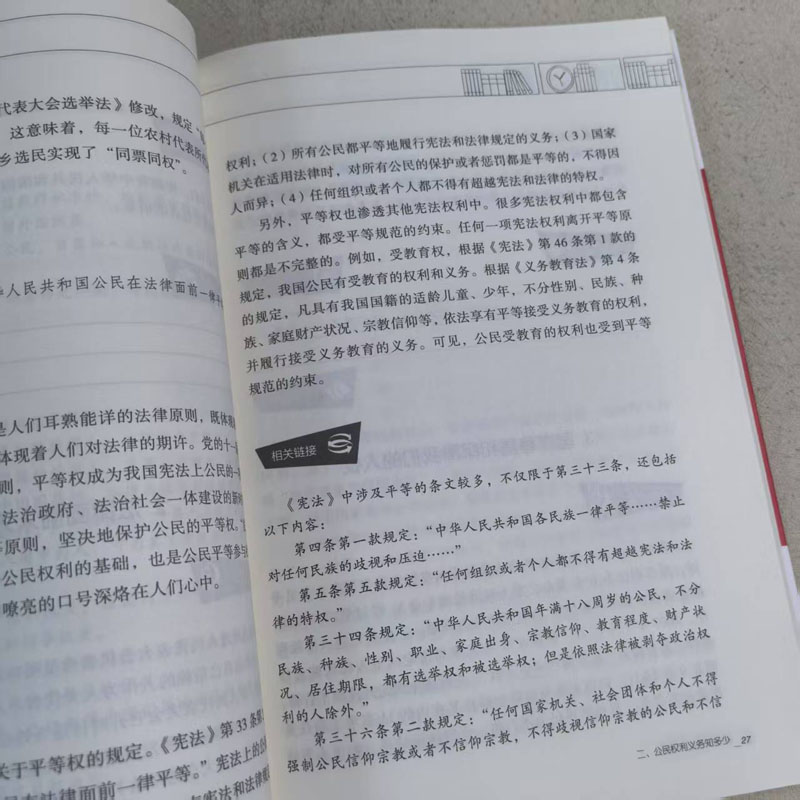 代表大会选举法》修改，规定“
这意味着，每一位农村代表所
乡选民实现了“同票同权”。
人民共和国公民在法律面前一律平
是人们耳熟能详的法律原则，既体
体现着人们对法律的期许。党的十一
则，平等权成为我国宪法上公民的一
法治政府、法治社会一体建设的新
原则，坚决地保护公民的平等权。
公民权利的基础，也是公民平等参与
嘹亮的口号深烙在人们心中。
关于平等权的规定。《宪法》第33条
在法律面前一律平等。”宪法上的
有宪法和法律
权利；（2）所有公民都平等地履行宪法和法律规定的义务；（3）国家
机关在适用法律时，对所有公民的保护或者惩罚都是平等的，不得因
人而异；（4）任何组织或者个人都不得有超越宪法和法律的特权。
另外，平等权也渗透其他宪法权利中。很多宪法权利中都包含
平等的含义，都受平等规范的约束。任何一项宪法权利离开平等原
则都是不完整的。例如，受教育权，根据《宪法》第46条第1款的
规定，我国公民有受教育的权利和义务。根据《义务教育法》第4条
的规定，凡具有我国国籍的适龄儿童、少年，不分性别、民族、种
族、家庭财产状况、宗教信仰等，依法享有平等接受义务教育的权利，
并履行接受义务教育的义务。可见，公民受教育的权利也受到平等
规范的约束。
相关链接
《宪法》中涉及平等的条文较多，不仅限于第三十三条，还包括
以下内容：
第四条第一款规定：“中华人民共和国各民族一律平等……禁止
对任何民族的歧视和压迫……”
第五条第五款规定：“任何组织或者个人都不得有超越宪法和法
律的特权。”
第三十四条规定：“中华人民共和国年满十八周岁的公民，不分
民族、种族、性别、职业、家庭出身、宗教信仰、教育程度、财产状
况、居住期限，都有选举权和被选举权；但是依照法律被剥夺政治权
利的人除外。”
第三十六条第二款规定：“任何国家机关、社会团体和个人不得
强制公民信仰宗教或者不信仰宗教，不得歧视信仰宗教的公民和不信
二、公民权利义务知多少 27